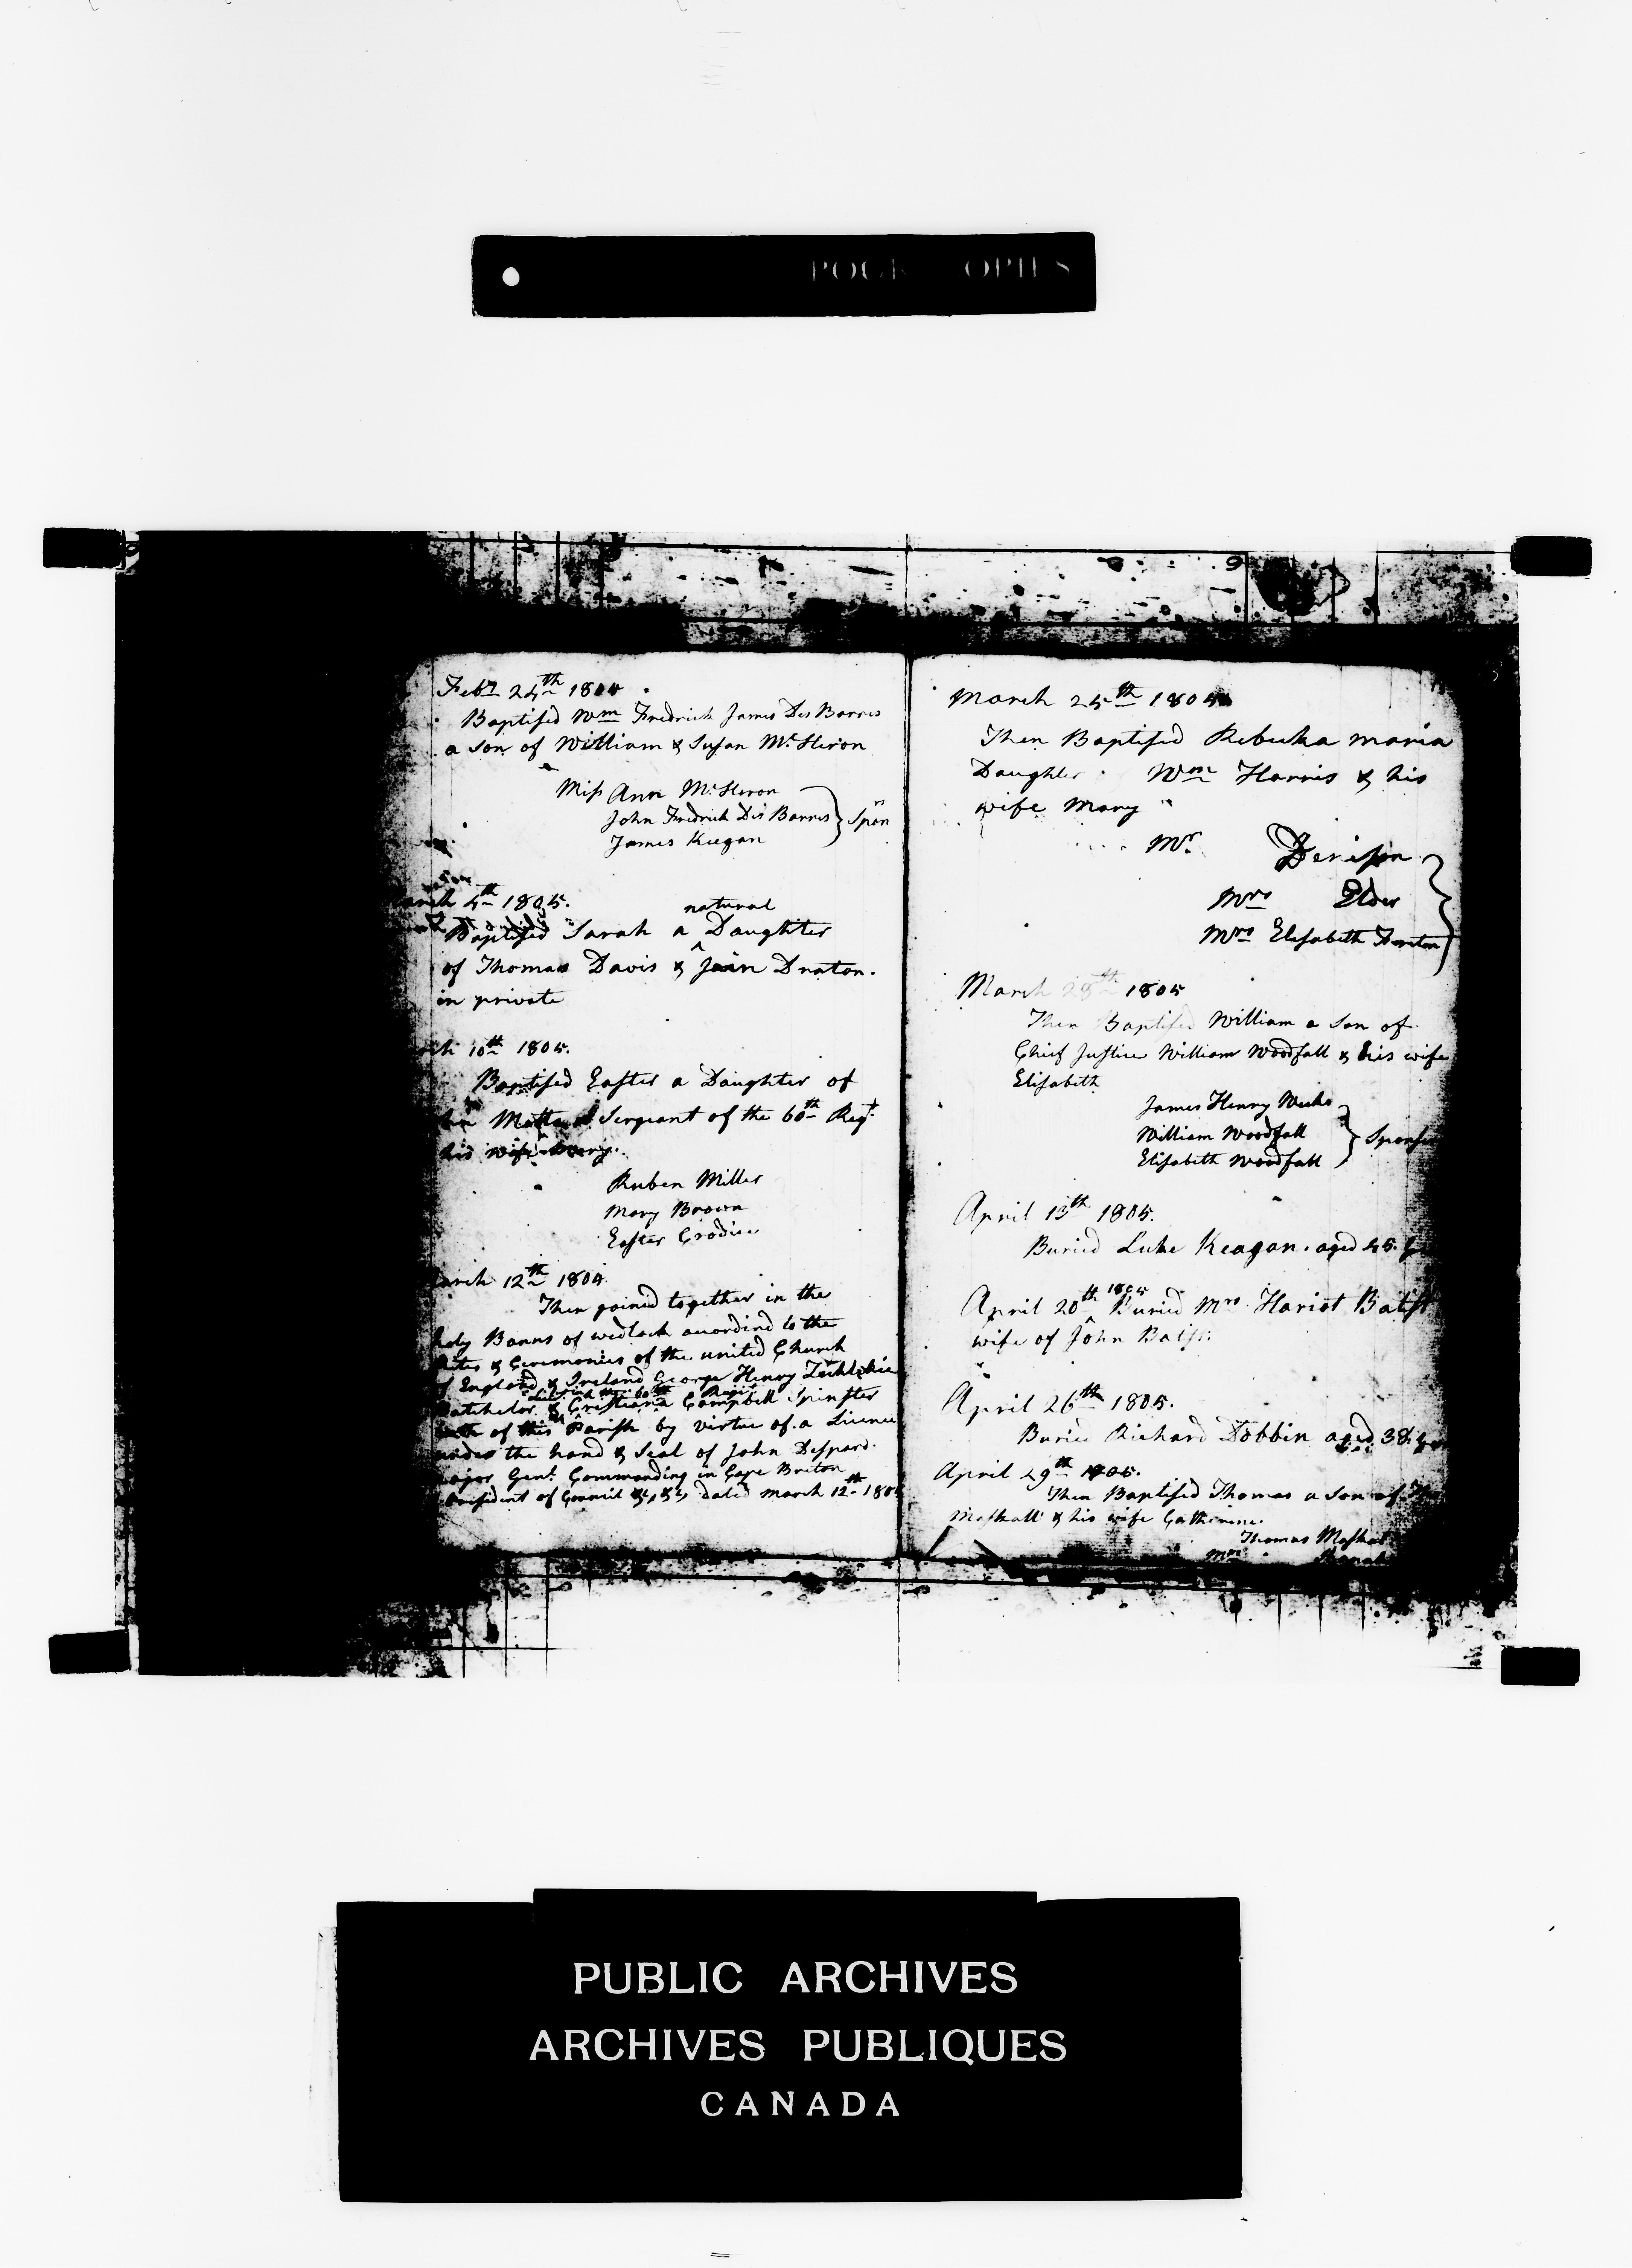 POCK COPIES
Feby 24th 1805
Baptised Wm Fredrick James Des Barres
a son of William & Susan McHeron
Miss Ann McHeron
John Fredrick Des Barres } Spon
James Keegan
March 4th 1805.
natural
Baptised Sarah a Daughter
of Thomas Davis & Jain Draton.
in private
10th 1805.
Baptised Easter a Daughter of
Serjeant of the 60th Regt
his wife Mary.
Ruben Miller
Mary Brown
Easter
March 12th 1805.
Then joined together in the
holy Banns of wedlock acordind to the
Rites & Ceremonies of the united Church
of England & Ireland George Henry
Lieut in the 60th Regit
Batchelor & Cristiana Campbell Spinster
both of this Parish by virtue of a Licence
under the hand & Seal of John Despard.
Major Genl Commanding in Cape Briton
President of Council &c, &c, dated March 12th 1805
March 25th 1805
Then Baptised Rebecka Maria
Daughter Wm Harris & his
wife Mary
Mr. Denison
Mrs Elder
Mrs Elisabeth
March 28th 1805
Then Baptised William a Son of
Chief Justice William Woodfall & his wife
Elisabeth
James Henry Weeks
William Woodfall } Sponsor
Elisabeth Woodfall
April 13th 1805.
Buried Luke Keagan. aged 45.
1805
April 20th Buried Mrs Hariot Balist
wife of John
April 26th 1805.
Buried Richard Dobbin aged 38
April 29th 1805.
Then Baptised Thomas a son of
Maskall & his wife Catherine.
Thomas
Mrs
PUBLIC ARCHIVES
ARCHIVES PUBLIQUES
CANADA